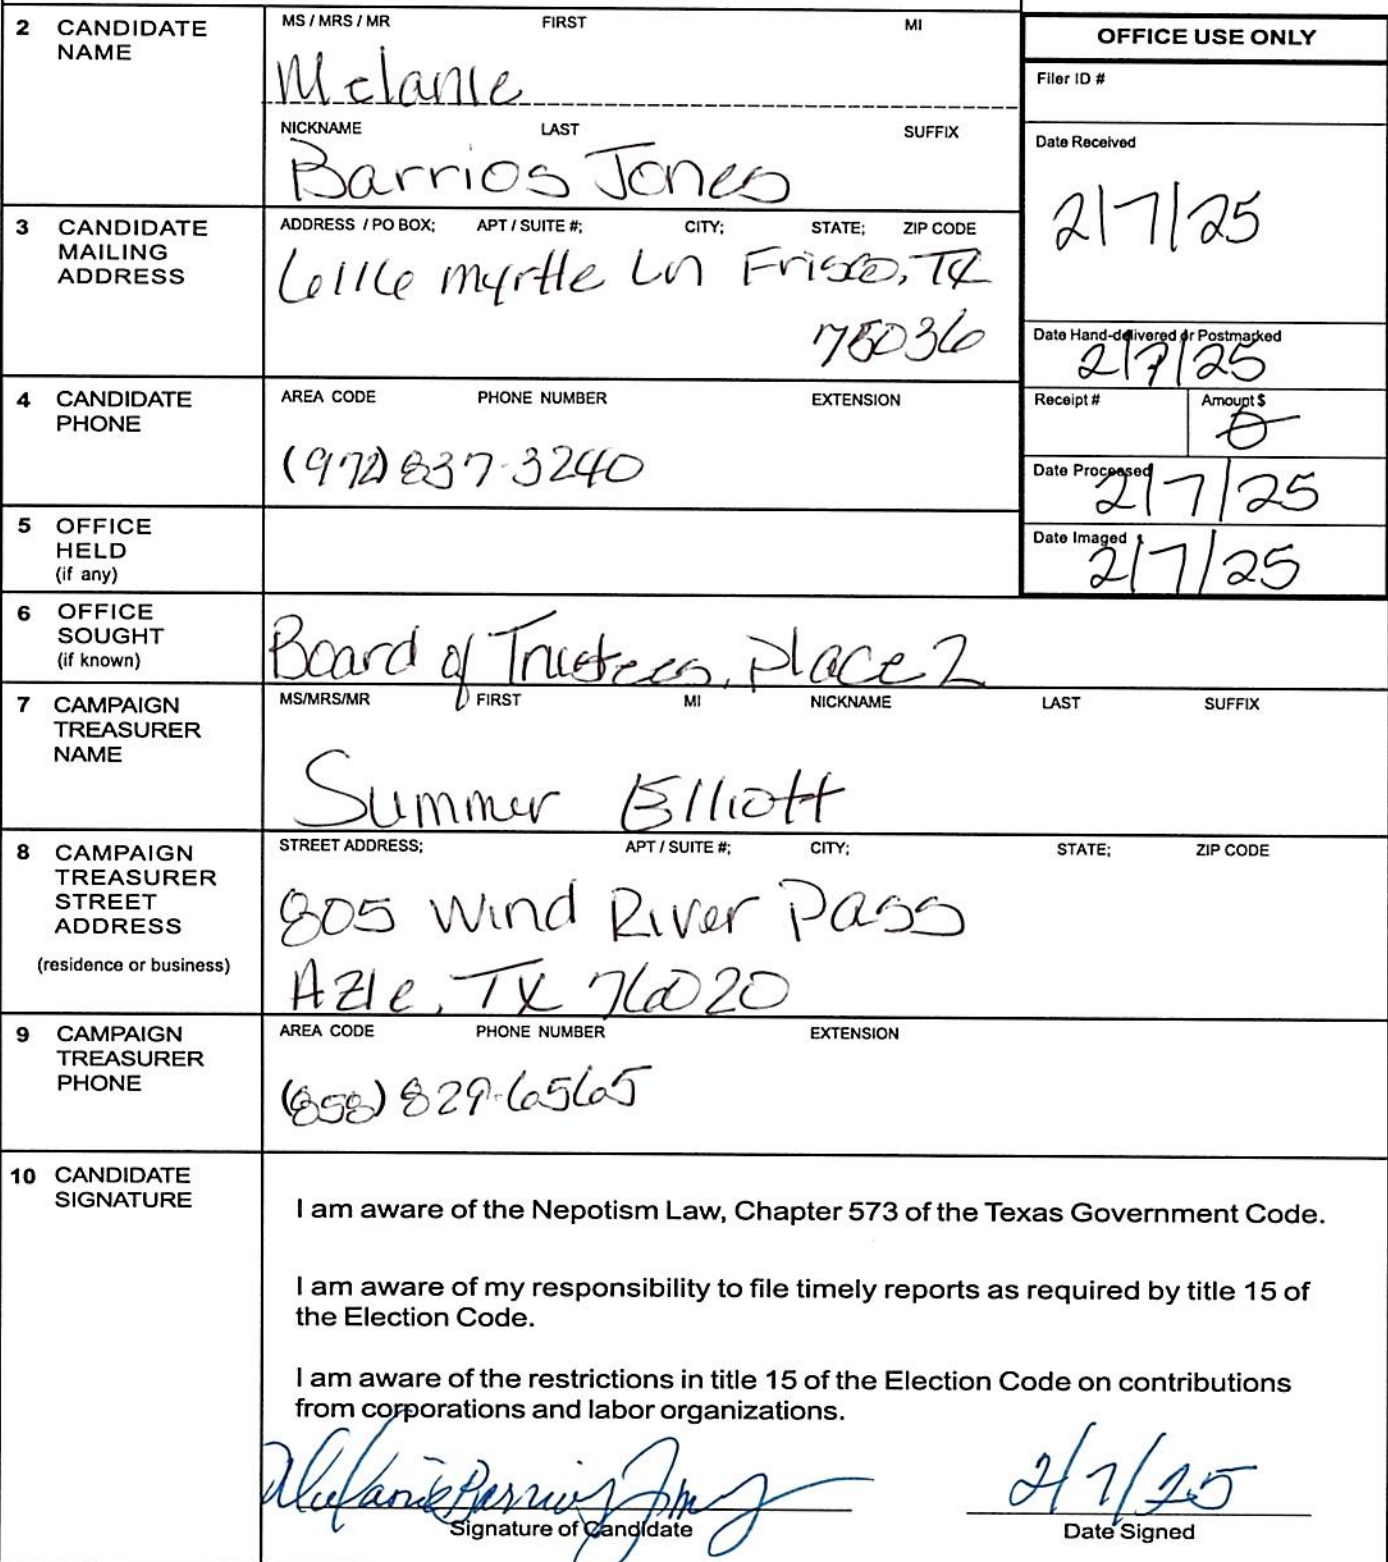 2 CANDIDATE NAME
MS / MRS / MR FIRST MI
Melanie
NICKNAME LAST SUFFIX
Barrios Jones
OFFICE USE ONLY
Filer ID #
Date Received
2/7/25
Date Hand-delivered or Postmarked
2/7/25
Receipt # Amount $
0
Date Processed
2/7/25
Date Imaged
2/7/25
3 CANDIDATE MAILING ADDRESS
ADDRESS / PO BOX; APT / SUITE #; CITY; STATE; ZIP CODE
6116 Myrtle Ln Frisco, TX
75036
4 CANDIDATE PHONE
AREA CODE PHONE NUMBER EXTENSION
(972) 837-3240
5 OFFICE HELD
(if any)
6 OFFICE SOUGHT
(if known)
Board of Trustees, Place 2
7 CAMPAIGN TREASURER NAME
MS/MRS/MR FIRST MI NICKNAME LAST SUFFIX
Summer Elliott
8 CAMPAIGN TREASURER STREET ADDRESS
(residence or business)
STREET ADDRESS; APT / SUITE #; CITY; STATE; ZIP CODE
805 Wind River Pass
Azle, TX 76020
9 CAMPAIGN TREASURER PHONE
AREA CODE PHONE NUMBER EXTENSION
(858) 829-6565
10 CANDIDATE SIGNATURE
I am aware of the Nepotism Law, Chapter 573 of the Texas Government Code.
I am aware of my responsibility to file timely reports as required by title 15 of
the Election Code.
I am aware of the restrictions in title 15 of the Election Code on contributions
from corporations and labor organizations.
Melanie Barrios Jones 2/7/25
Signature of Candidate Date Signed